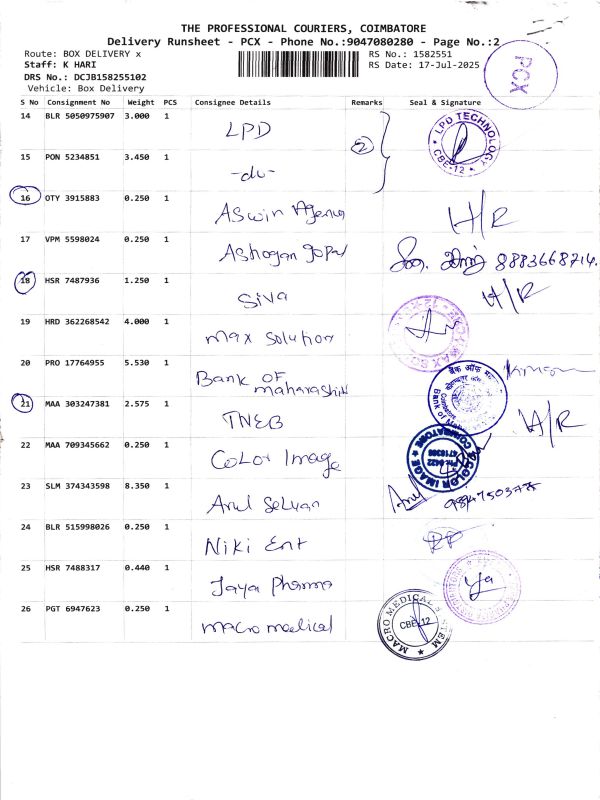 THE PROFESSIONAL COURIERS, COIMBATORE
Delivery Runsheet - PCX - Phone No.:9047080280 - Page No.:2
Route: BOX DELIVERY x RS No.: 1582551
Staff: K HARI RS Date: 17-Jul-2025
DRS No.: DCJB158255102
Vehicle: Box Delivery
PCX
S No Consignment No Weight PCS Consignee Details Remarks Seal & Signature
14 BLR 5050975907 3.000 1 LPD 2 LPD TECHNOLOGY CBE-12
15 PON 5234851 3.450 1 -do-
16 OTY 3915883 0.250 1 Aswin Agency H/R
17 VPM 5598024 0.250 1 Ashogan gopal 8883668714.
18 HSR 7487936 1.250 1 Siva H/R
19 HRD 362268542 4.000 1 Max Solution
20 PRO 17764955 5.530 1 Bank OF maharashtra
21 MAA 303247381 2.575 1 TNEB H/R
22 MAA 709345662 0.250 1 Color Image COLOR IMAGE COIMBATORE PH: 0422 4718366
23 SLM 374343598 8.350 1 Arul Selvan
24 BLR 515998026 0.250 1 Niki Ent
25 HSR 7488317 0.440 1 Jaya Pharma
26 PGT 6947623 0.250 1 macro medical MACRO MEDICAL CBE-12